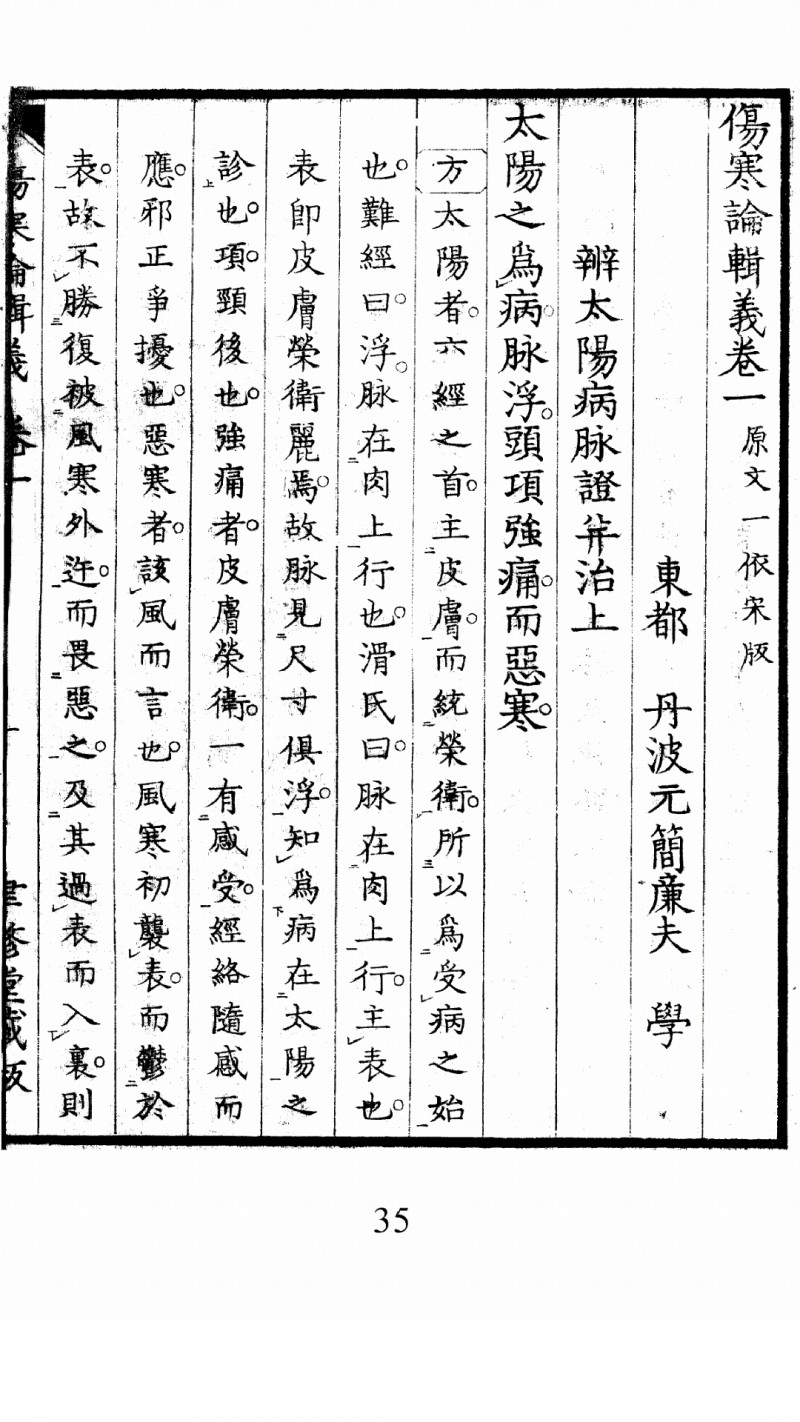 傷寒論輯義卷一 原文一依宋版
東都 丹波元簡廉夫 學
辨太陽病脉證幷治上
太陽之爲病。脉浮。頭項強痛。而惡寒。
方 太陽者。六經之首。主皮膚。而統榮衛。所以爲受病之始
也。難經曰。浮。脉在肉上行也。滑氏曰。脉在肉上行。主表也。
表卽皮膚榮衛麗焉。故脉見尺寸俱浮。知爲病在太陽之
診也。項。頸後也。強痛者。皮膚榮衛。一有感受。經絡隨感而
應。邪正爭擾也。惡寒者。該風而言也。風寒初襲表。而鬱於
表。故不勝復被風寒外迕。而畏惡之。及其過表而入裏。則
傷寒論輯義 卷一 一 聿修堂藏版
35